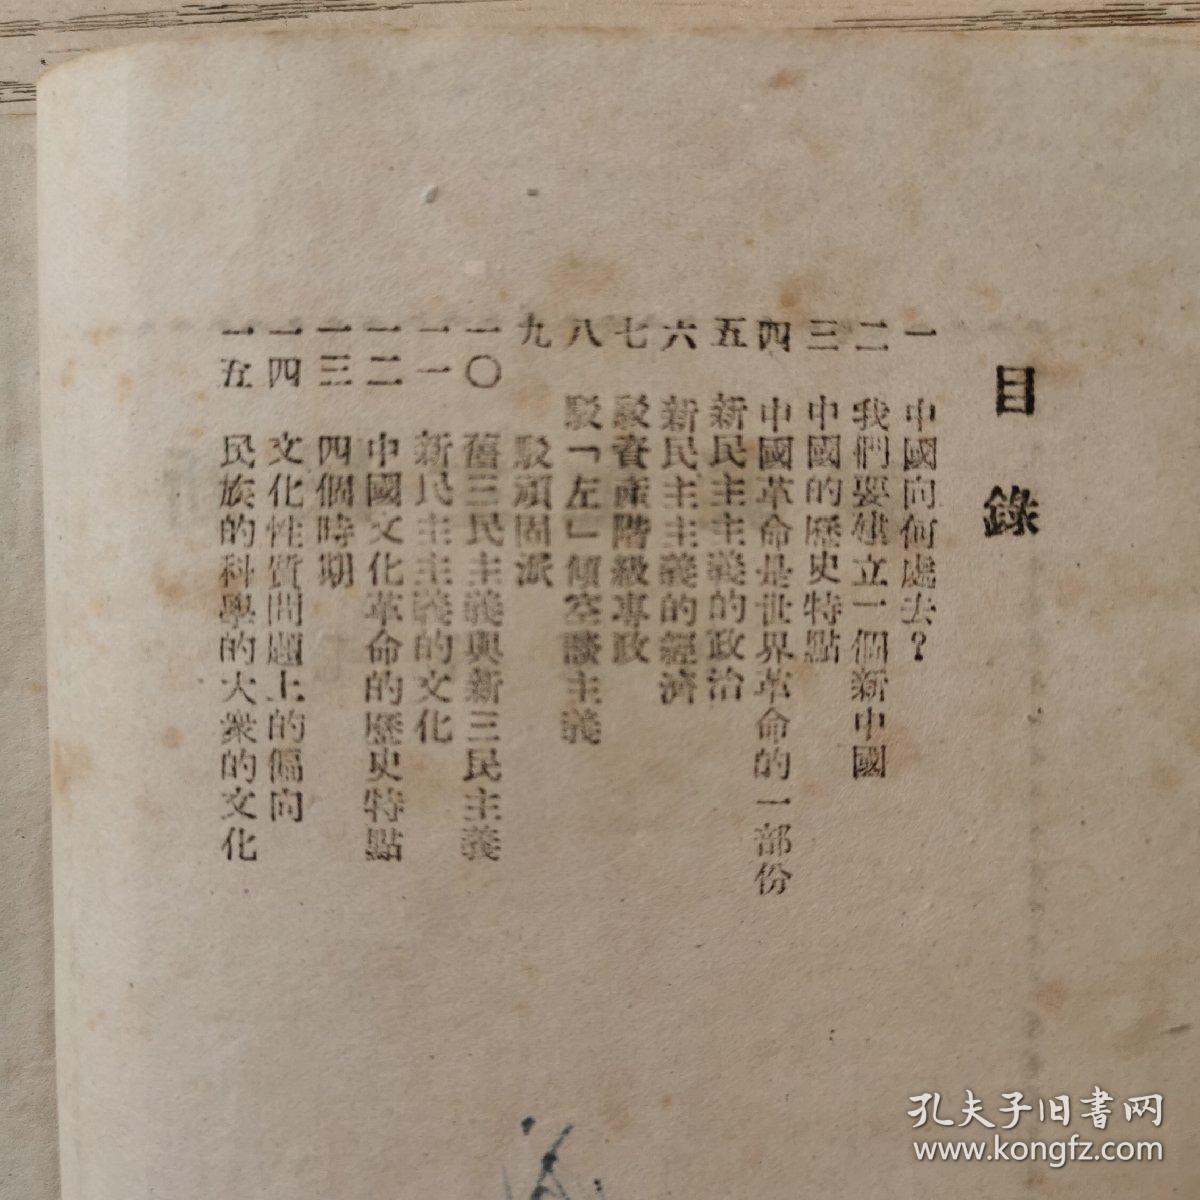 目錄
一 中國向何處去？
二 我們要建立一個新中國
三 中國的歷史特點
四 中國革命是世界革命的一部份
五 新民主主義的政治
六 新民主主義的經濟
七 駁資產階級專政
八 駁「左」傾空談主義
九 駁頑固派
一〇 舊三民主義與新三民主義
一一 新民主主義的文化
一二 中國文化革命的歷史特點
一三 四個時期
一四 文化性質問題上的偏向
一五 民族的科學的大衆的文化
孔夫子旧书网
www.kongfz.com